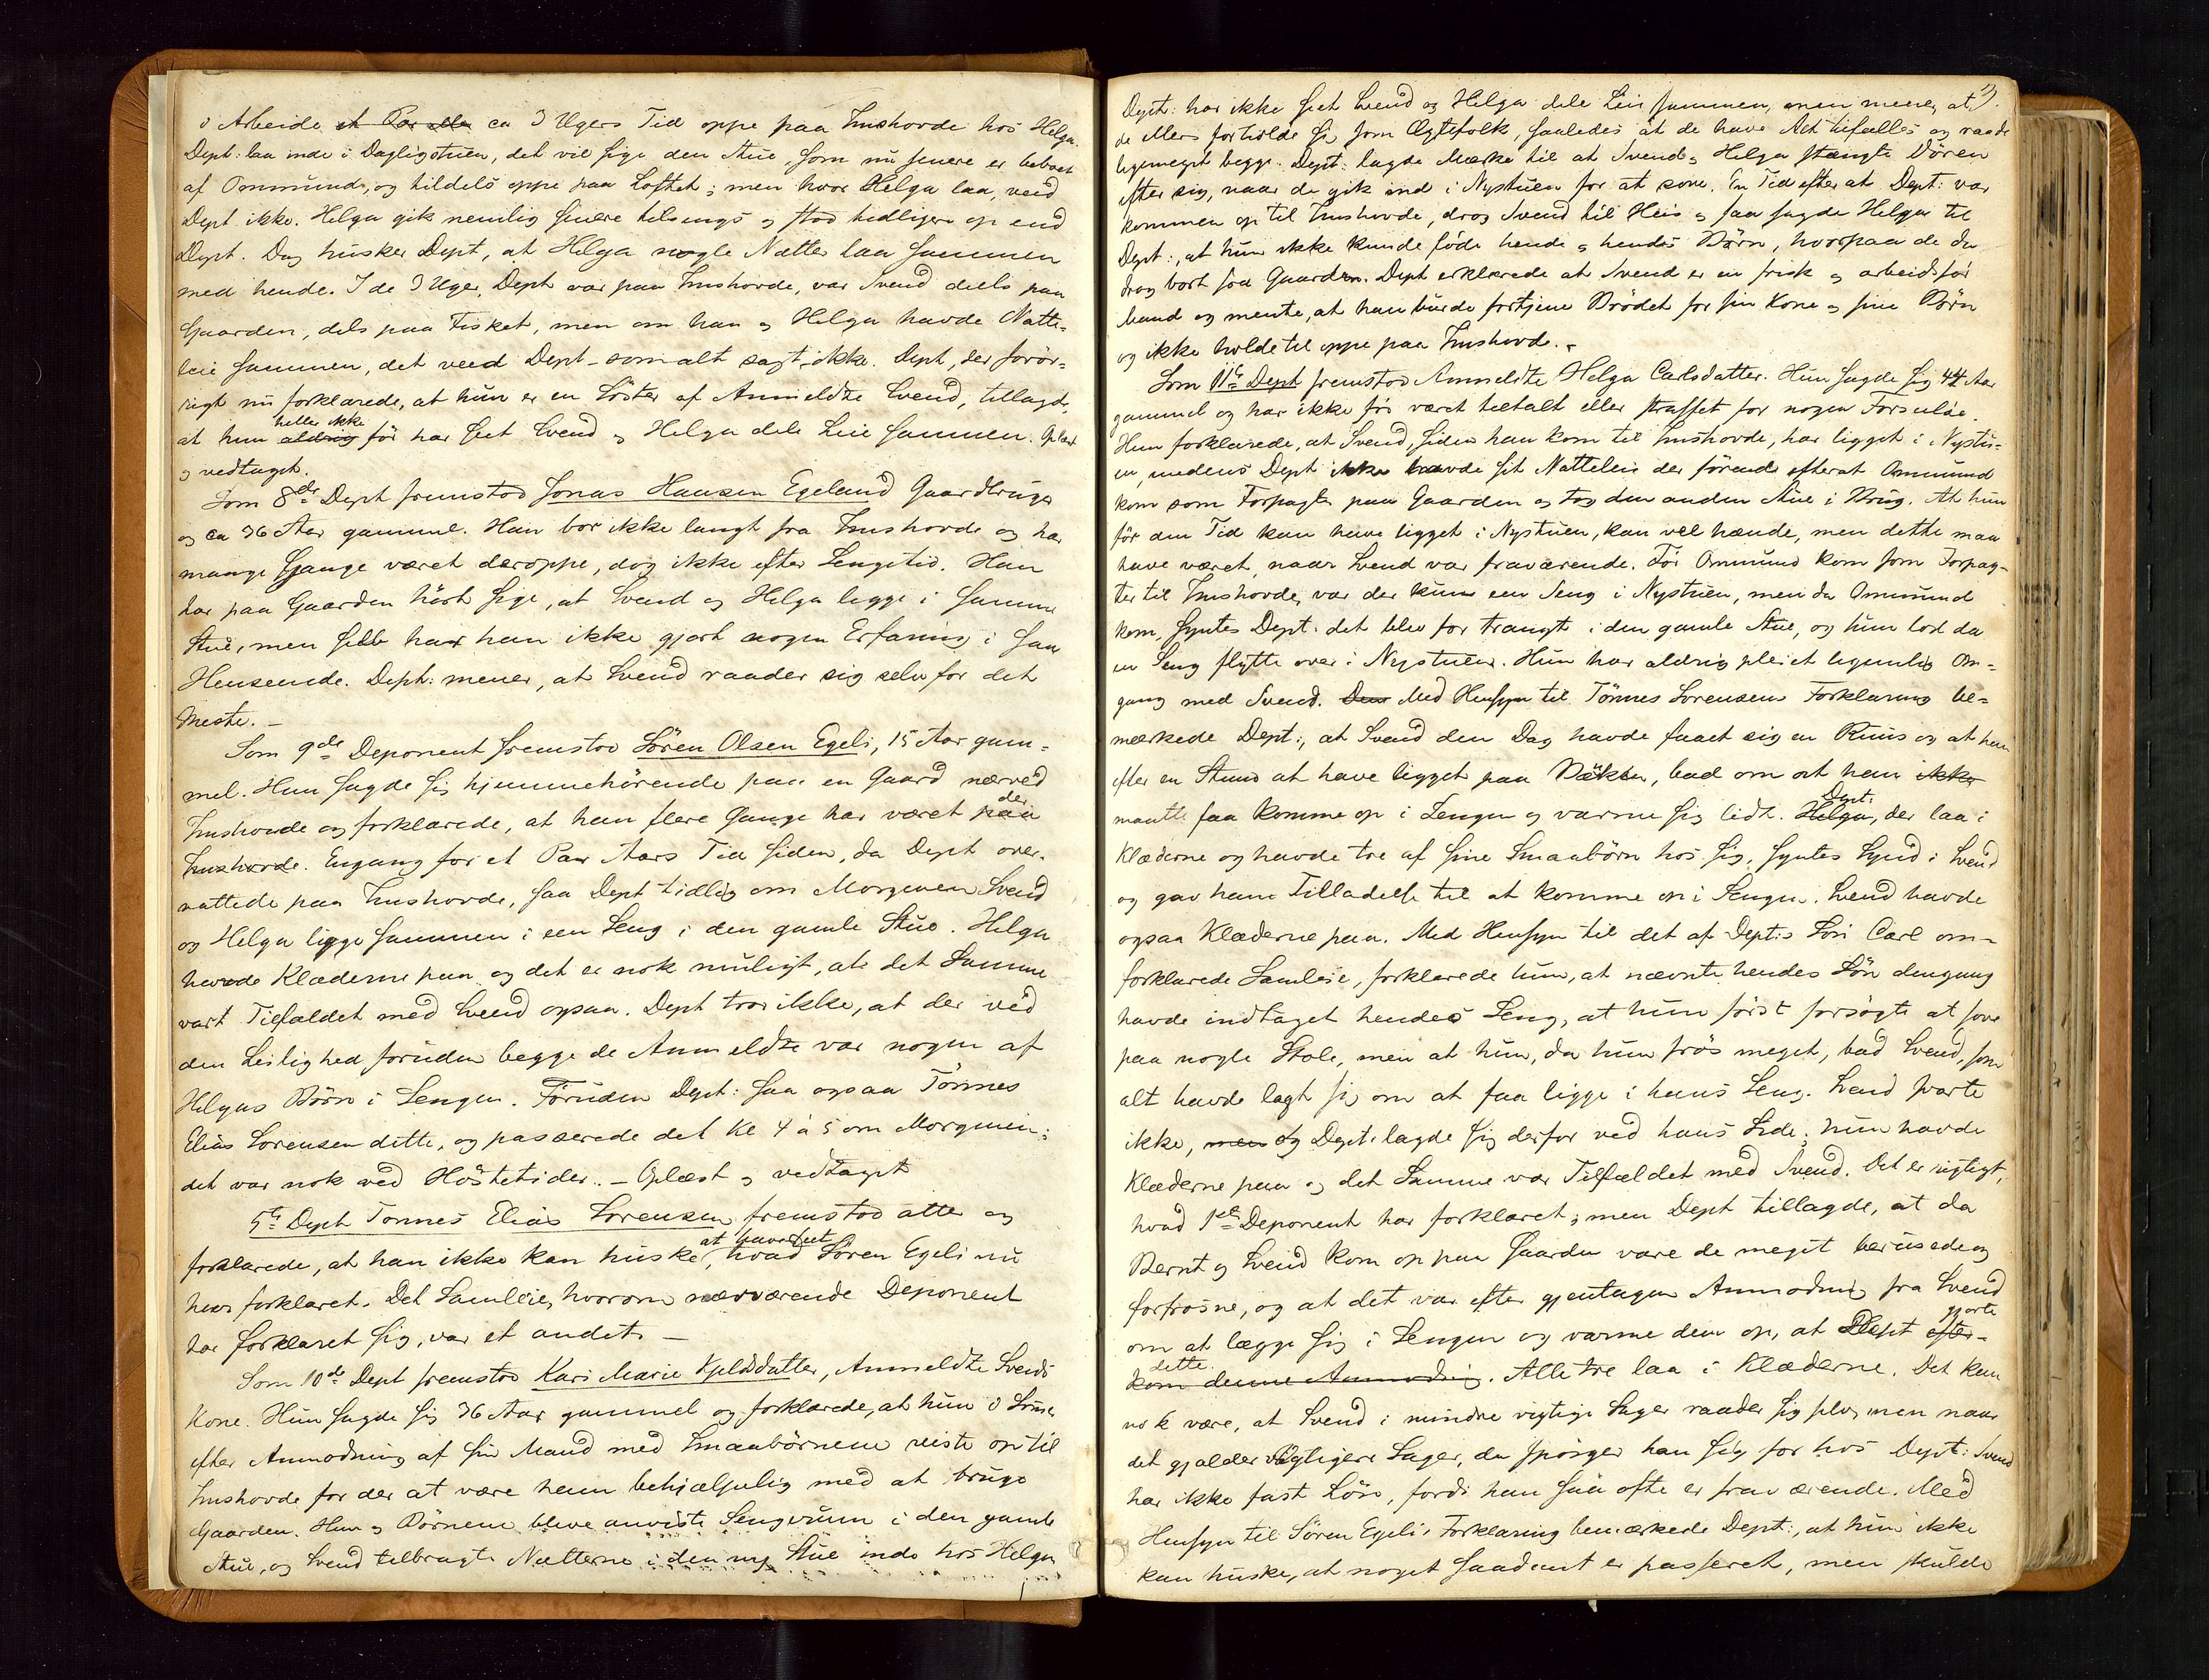 i Arbeide et Par eller ca 3 Ugers Tid oppe paa Imshovde hos Helga.
Dept: laa inde i Dagligstuen, det vil sige den Stue, som nu senere er beboet
af Ommund, og tildels oppe paa Loftet; men hvor Helga laa, veed
Dept ikke. Helga gik nemlig senere tilsengs og stod tidligere op end
Dept. Dog husker Dept, at Helga nogle Nætter laa sammen
med hende. I de 3 Uger, Dept var paa Imshovde, var Svend dels paa
Gaarden, dels paa Fisket, men om han og Helga havde Natte-
leie sammen, det veed Dept - som alt sagt - ikke. Dept, der forøv-
rigt nu forklarede, at hun er en Søster af Anmeldte Svend, tillagde,
at hun aldrig heller ikke før har seet Svend og Helga dele Leie sammen. Oplæst
og vedtaget.
Som 8de Dept fremstod Jonas Hansen Egeland Gaardbruger
og ca 36 Aar gammel. Han bor ikke langt fra Imshovde og har
mange Gange været deroppe, dog ikke efter Sengetid. Han
har paa Gaarden hørt sige, at Svend og Helga ligge i samme
Stue, men selv har han ikke gjort nogen Erfaring i saa
Henseende. Dept: mener, at Svend raader sig selv for det
meste. -
Som 9de Deponent fremstod Sören Olsen Egeli, 15 Aar gam-
mel. Han sagde sig hjemmehörende paa en Gaard nærved
Imshovde og forklarede, at han flere Gange har været paa der
Imshovde. Engang for et Par Aars Tid siden, da Dept over-
nattede paa Imshovde, saa Dept tidlig om Morgenen Svend
og Helga ligge sammen i een Seng i den gamle Stue. Helga
havde Klæderne paa og det er nok muligt, at det Samme
vart Tilfældet med Svend ogsaa. Dept tror ikke, at der ved
den Leilighed foruden begge de Anmeldte var nogen af
Helgas Börn i Sengen. Foruden Dept: saa ogsaa Tönnes
Elias Sorensen dette, og passerede det Kl 4 à 5 om Morgenen;
det var nok ved Höstetider. - Oplæst og vedtaget
5te Dept Tonnes Elias Sorensen fremstod atter og
forklarede, at han ikke kan huske, at have seet hvad Sören Egeli nu
have forklaret. Det Samleie, hvorom nærværende Deponent
har forklaret sig, var et andet. -
Som 10de Dept fremstod Kari Marie Kjeldsdatter, Anmeldte Svends
Kone. Hun sagde sig 36 Aar gammel og forklarede, at hun i Somer
efter Anmodning af sin Mand med Smaabörnene reiste op til
Imshovde for der at være ham behjælpelig med at bruge
Gaarden. Hun og Börnene bleve anviste Sengerum i den gamle
Stue, og Svend tilbragte Nætterne i den ny Stue inde hos Helga
Dept: har ikke seet Svend og Helga dele Leie sammen, men mener, at
de ellers forholde sig som Ægtefolk, saaledes at de have Alt tilfælles og raade
ligemeget begge. Dept: lagde Mærke til at Svend og Helga stængte Dören
efter sig, naar de gik ind i Nystuen for at sove. En Tid efter at Dept: var
kommen op til Imshovde, drog Svend til Heis og saa sagde Helga til
Dept:, at hun ikke kunde föde hende og hendes Börn, hvorpaa de da
drog bort fra Gaarden. Dept erklærede at Svend er en frisk og arbeidsför
Mand og mente, at han burde fortjene Brödet for sin Kone og sine Börn
og ikke holde til oppe paa Imshovde. -
Som 11te Dept fremstod Anmeldte Helga Carlsdatter. Hun sagde sig 44 Aar
gammel og har ikke før været tiltalt eller straffet for nogen Forseelse.
Hun forklarede, at Svend, siden han kom til Imshovde, har ligget i Nystu-
en, medens Dept ikke havde sit Natteleie der förend efterat Ommund
kom som Forpagter paa Gaarden og tog den anden Stue i Brug. At hun
för den Tid kan have ligget i Nystuen, kan vel hænde, men dette maa
have været, naar Svend var fraværende. Før Ommund kom som Forpag-
ter til Imshovde, var der kun een Seng i Nystuen, men da Ommund
kom, syntes Dept: det blev for trangt i den gamle Stue, og hun lod da
en Seng flytte over i Nystuen. Hun har aldrig pleiet legemlig Om-
gang med Svend. Den Med Hensyn til Tönnes Sorensens Forklaring be-
mærkede Dept:, at Svend den Dag havde faaet sig en Ruus og at han
efter en Stund at have ligget paa Bænken, bad om at han ikke
maatte faa komme op i Sengen og varme sig lidt. Helga Dept:, der laa i
Klæderne og havde tre af sine Smaabörn hos sig, syntes Synd i Svend
og gav ham Tilladelse til at komme op i Sengen. Svend havde
ogsaa Klæderne paa. Med Hensyn til det af Dept:s Sön Carl om-
forklarede Samleie, forklarede hun, at nævnte hendes Sön dengang
havde indtaget hendes Seng, at hun först forsögte at sove
paa nogle Stole, men at hun, da hun frös meget, bad Svend, som
alt havde lagt sig om at faa ligge i hans Seng. Svend svarte
ikke, men og Dept: lagde sig derfor ved hans Side; hun havde
Klæderne paa og det Samme var Tilfældet med Svend. Det er rigtigt,
hvad 1ste Deponent har forklaret; men Dept tillagde, at da
Bernt og Svend kom op paa Gaarden vare de meget berusede og
forfrosne, og at det var efter gjentagen Anmodning fra Svend
om at lægge sig i Sengen og varme dem op, at Dept efter- gjorte
kom denne Anmodning dette. Alle tre laa i Klæderne. Det kan
nok være, at Svend i mindre vigtige Sager raader sig selv, men naar
det gjælder vigtigere Sager, da spörger han sig for hos Dept: Svend
har ikke fast Lön, fordi han saa ofte er fraværende. Med
Hensyn til Sören Egelis Forklaring bemærkede Dept:, at hun ikke
kan huske, at noget saadant er passeret, men skulde